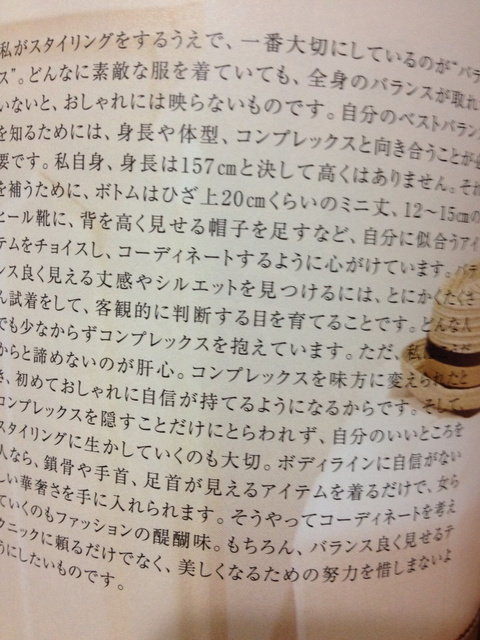 私がスタイリングをするうえで、一番大切にしているのが“バラ
ス”。どんなに素敵な服を着ていても、全身のバランスが取れ
いないと、おしゃれには映らないものです。自分のベストバラン
を知るためには、身長や体型、コンプレックスと向き合うことが必
要です。私自身、身長は157㎝と決して高くはありません。それ
を補うために、ボトムはひざ上20㎝くらいのミニ丈、12〜15㎝の
ヒール靴に、背を高く見せる帽子を足すなど、自分に似合うアイ
テムをチョイスし、コーディネートするように心がけています。バラ
ンス良く見える丈感やシルエットを見つけるには、とにかくたくさ
ん試着をして、客観的に判断する目を育てることです。どんな人
でも少なからずコンプレックスを抱えています。ただ、私は
からと諦めないのが肝心。コンプレックスを味方に変えられたと
き、初めておしゃれに自信が持てるようになるからです。そして、
コンプレックスを隠すことだけにとらわれず、自分のいいところを
スタイリングに生かしていくのも大切。ボディラインに自信がない
人なら、鎖骨や手首、足首が見えるアイテムを着るだけで、女ら
しい華奢さを手に入れられます。そうやってコーディネートを考え
ていくのもファッションの醍醐味。もちろん、バランス良く見せるテ
クニックに頼るだけでなく、美しくなるための努力を惜しまないよ
うにしたいものです。